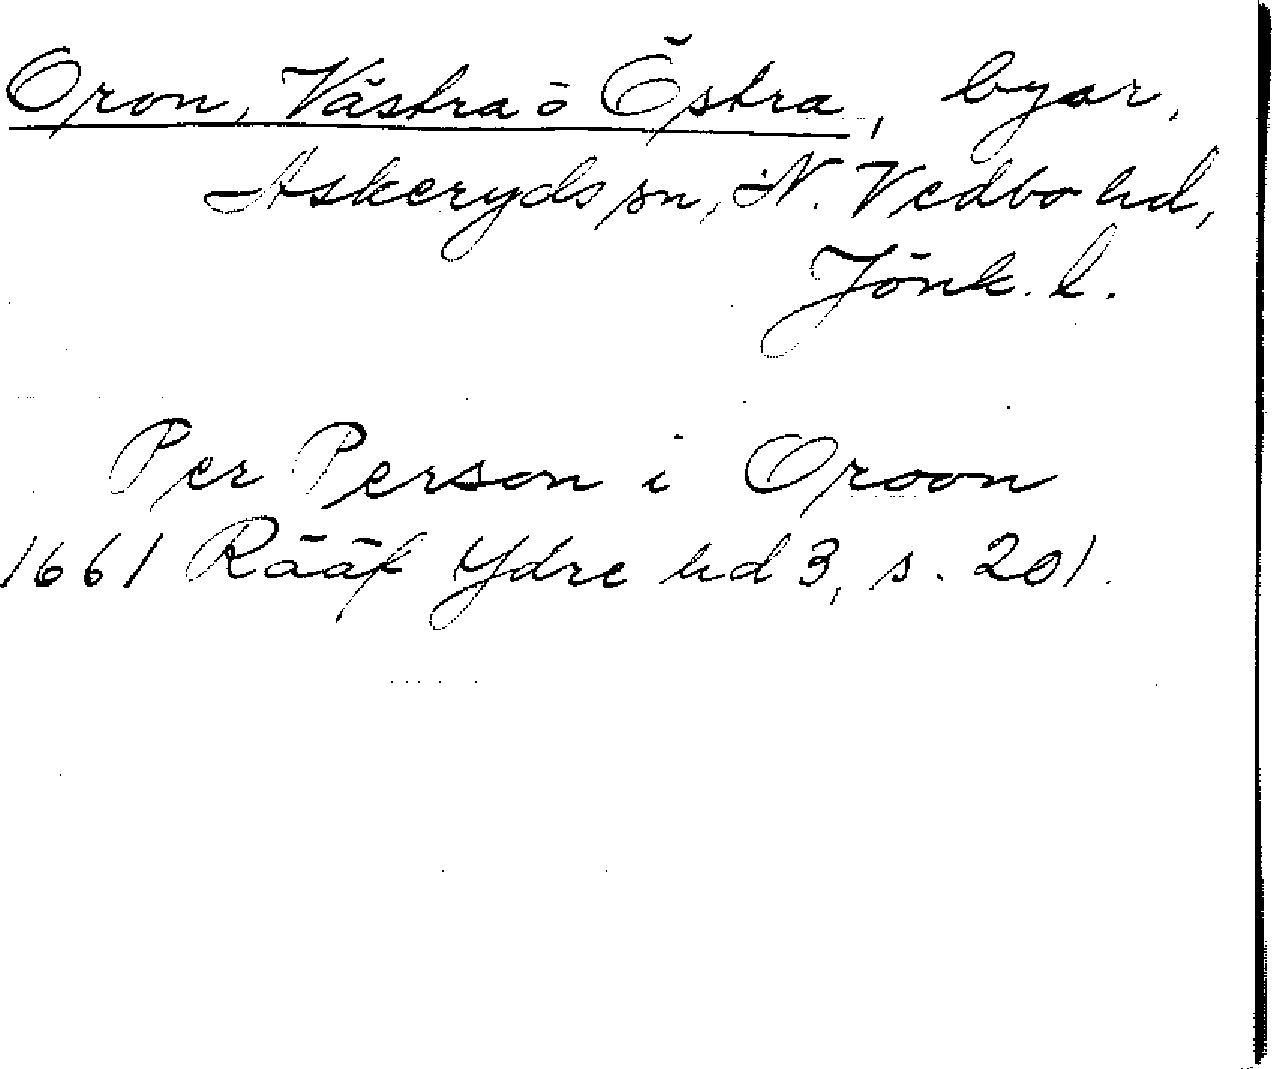 Oron, Västra o Östra, byar,
Askeryds sn, N. Vedbo hd,
Jönk. l.
Per Person i Oroon
1661 Rääf Ydre hd 3, s. 201.